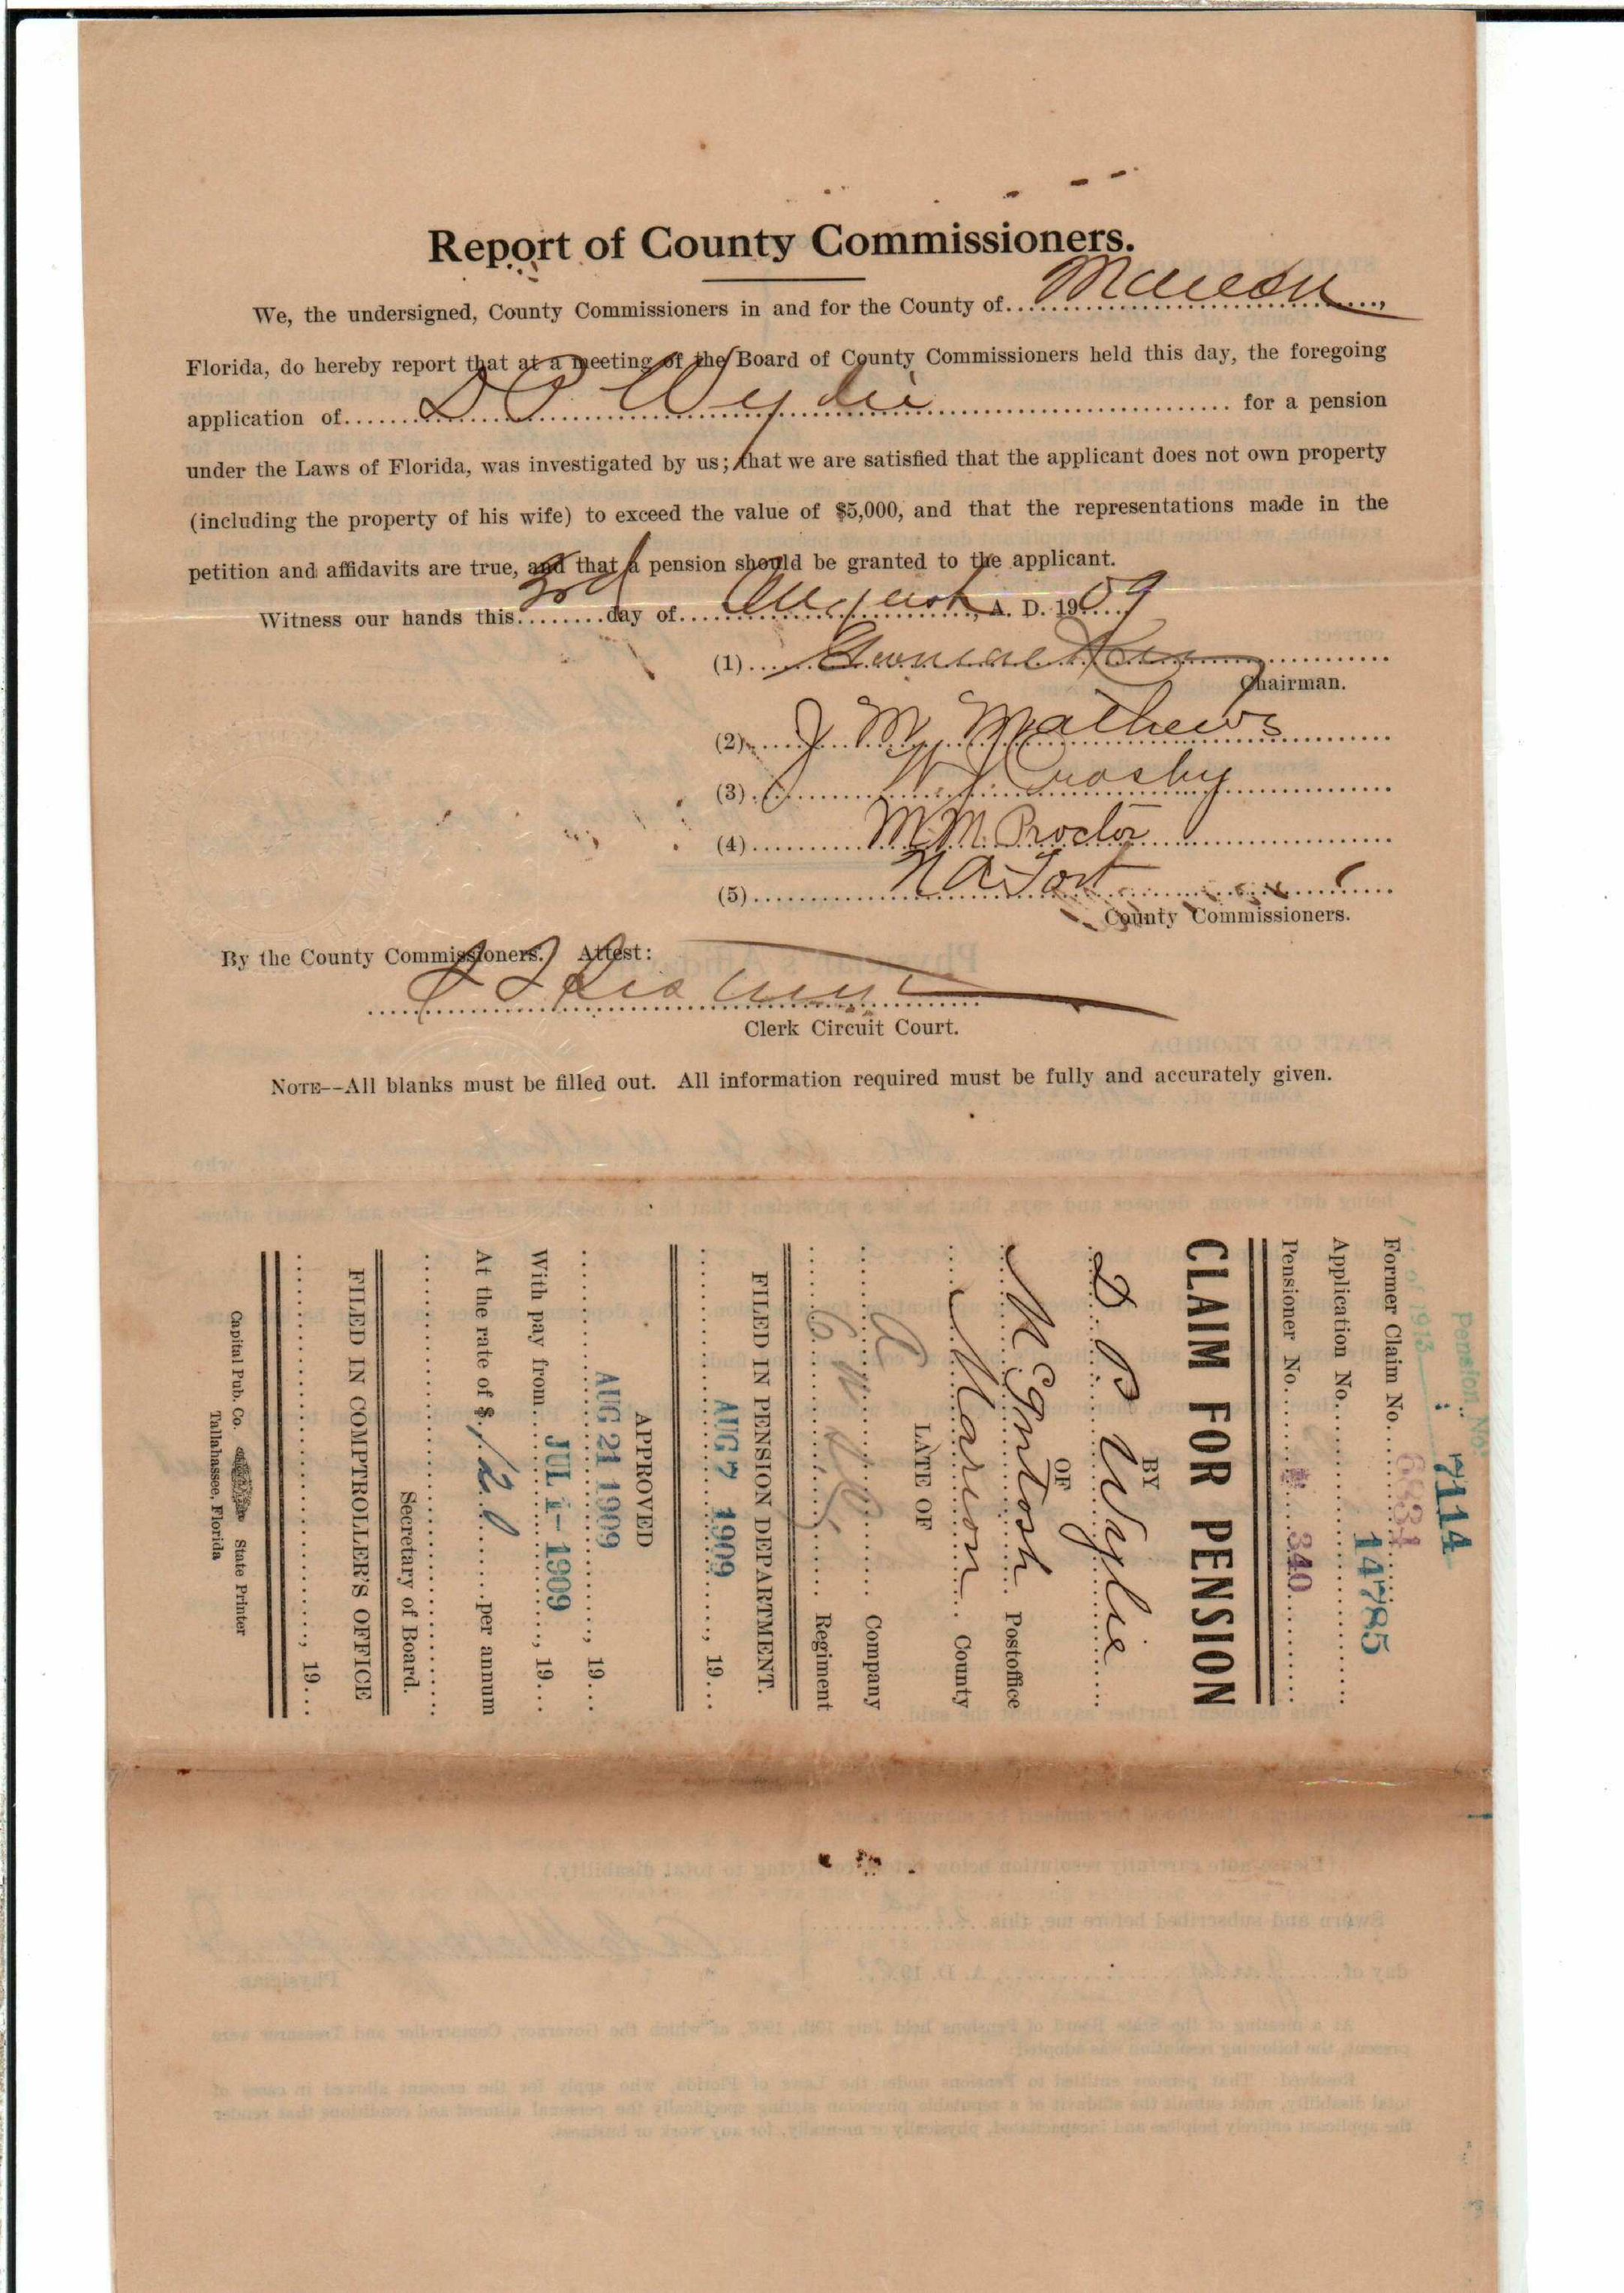 Report of County Commissioners.
We, the undersigned, County Commissioners in and for the County of Marion,
Florida, do hereby report that at a meeting of the Board of County Commissioners held this day, the foregoing
application of D P Wylie for a pension
under the Laws of Florida, was investigated by us; that we are satisfied that the applicant does not own property
(including the property of his wife) to exceed the value of $5,000, and that the representations made in the
petition and affidavits are true, and that a pension should be granted to the applicant.
Witness our hands this 3rd day of August, A. D. 1909
(1)
Chairman.
(2) J M Mathews
(3) W J Crosby
(4) M. M. Proctor
(5) N A Fort
County Commissioners.
By the County Commissioners. Attest:
Clerk Circuit Court.
NOTE--All blanks must be filled out. All information required must be fully and accurately given.
Pension No. 7114
of 1913
Former Claim No. 6334
Application No. 14785
Pensioner No. 340
CLAIM FOR PENSION
BY
D P Wylie
OF
McIntosh Postoffice
Marion County
LATE OF
Company
6 Regiment
FILED IN PENSION DEPARTMENT.
AUG 7 1909, 19
APPROVED
AUG 21 1909, 19
With pay from JUL 1- 1909, 19
At the rate of $ 120 per annum
Secretary of Board.
FILED IN COMPTROLLER'S OFFICE
, 19
Capital Pub. Co. State Printer
Tallahassee, Florida